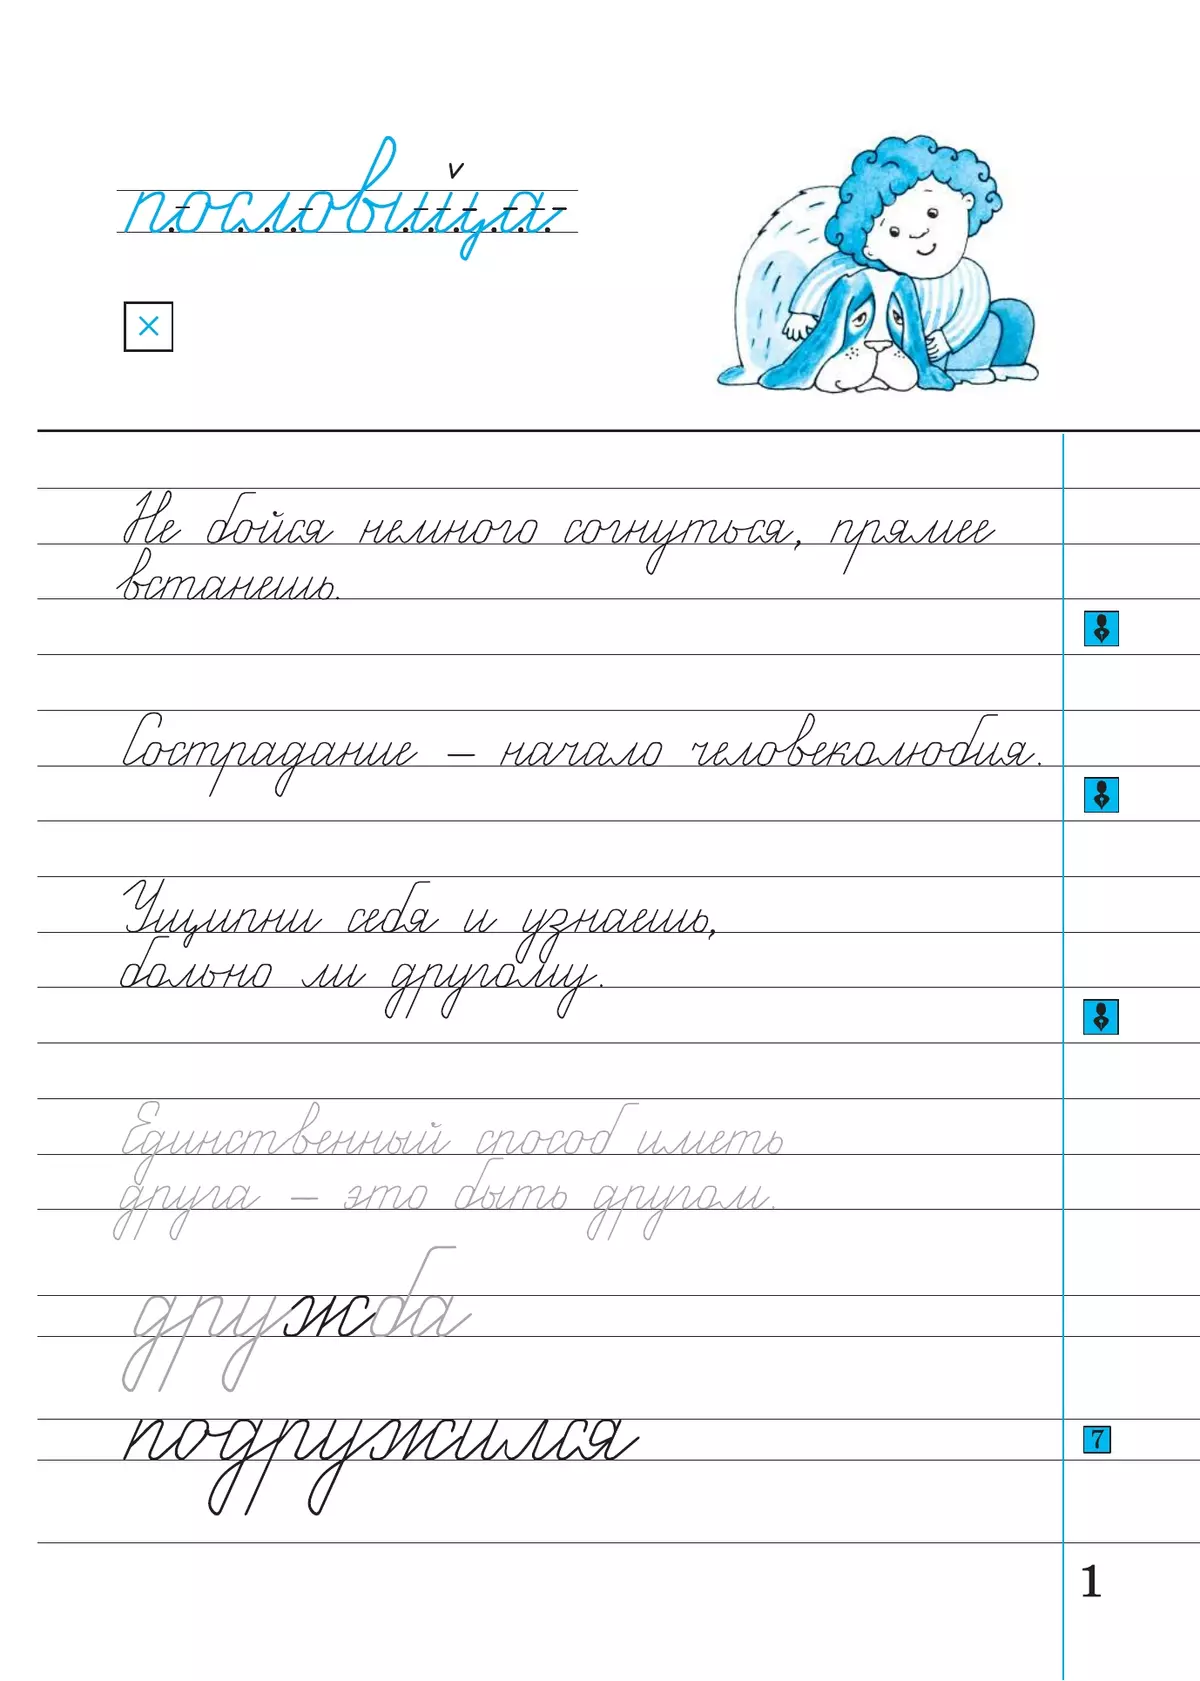 пословица
Не бойся немного согнуться, прямее
встанешь.
Сострадание – начало человеколюбия.
Ущипни себя и узнаешь,
больно ли другому.
Единственный способ иметь
друга – это быть другом.
дружба
подружился
7
1